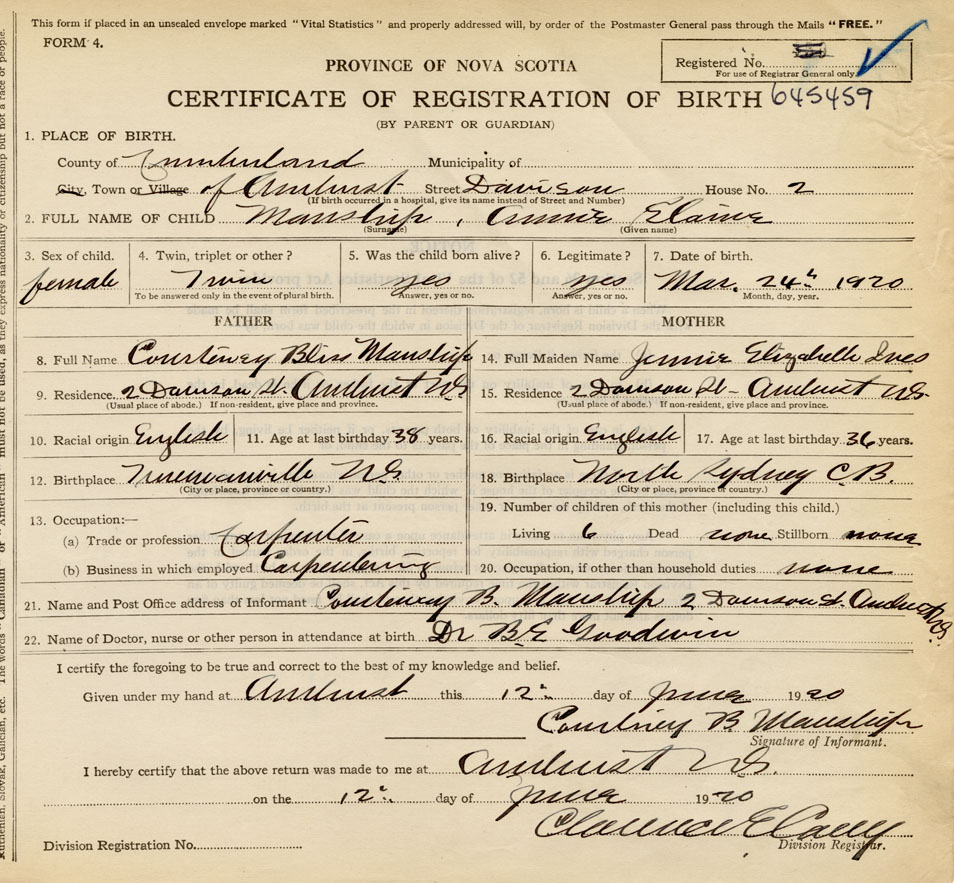 This form if placed in an unsealed envelope marked "Vital Statistics" and properly addressed will, by order of the Postmaster General pass through the Mails "FREE."
FORM 4.
Registered No.
For use of Registrar General only.
PROVINCE OF NOVA SCOTIA
CERTIFICATE OF REGISTRATION OF BIRTH 645459
(BY PARENT OR GUARDIAN)
1. PLACE OF BIRTH.
County of Cumberland Municipality of
City, Town or Village of Amherst Street Davison House No. 2
(If birth occurred in a hospital, give its name instead of Street and Number)
2. FULL NAME OF CHILD Manship, Annie Elaine
(Surname) (Given name)
3. Sex of child. 4. Twin, triplet or other? 5. Was the child born alive? 6. Legitimate? 7. Date of birth.
female Twin yes yes Mar. 24th 1920
To be answered only in the event of plural birth. Answer, yes or no. Answer, yes or no. Month, day, year.
FATHER MOTHER
8. Full Name Courteney Bliss Manship 14. Full Maiden Name Jennie Elizabeth Ives
9. Residence 2 Davison St. Amherst NS 15. Residence 2 Davison St - Amherst NS.
(Usual place of abode.) If non-resident, give place and province. (Usual place of abode.) If non-resident, give place and province.
10. Racial origin English 11. Age at last birthday 38 years. 16. Racial origin English 17. Age at last birthday 36 years.
12. Birthplace N.S. 18. Birthplace North Sydney C.B.
(City or place, province or country.) (City or place, province or country.)
19. Number of children of this mother (including this child.)
13. Occupation:—
(a) Trade or profession Carpenter Living 6 Dead none Stillborn none
(b) Business in which employed Carpentering 20. Occupation, if other than household duties none
21. Name and Post Office address of Informant Courteney B. Manship 2 Davison St. Amherst NS.
22. Name of Doctor, nurse or other person in attendance at birth Dr B.E Goodwin
I certify the foregoing to be true and correct to the best of my knowledge and belief.
Given under my hand at Amherst this 12th day of June 1920
Courtney B Manship
Signature of Informant.
I hereby certify that the above return was made to me at Amherst N.S.
on the 12th day of June 1920
Clarence E Casey
Division Registrar.
Division Registration No.